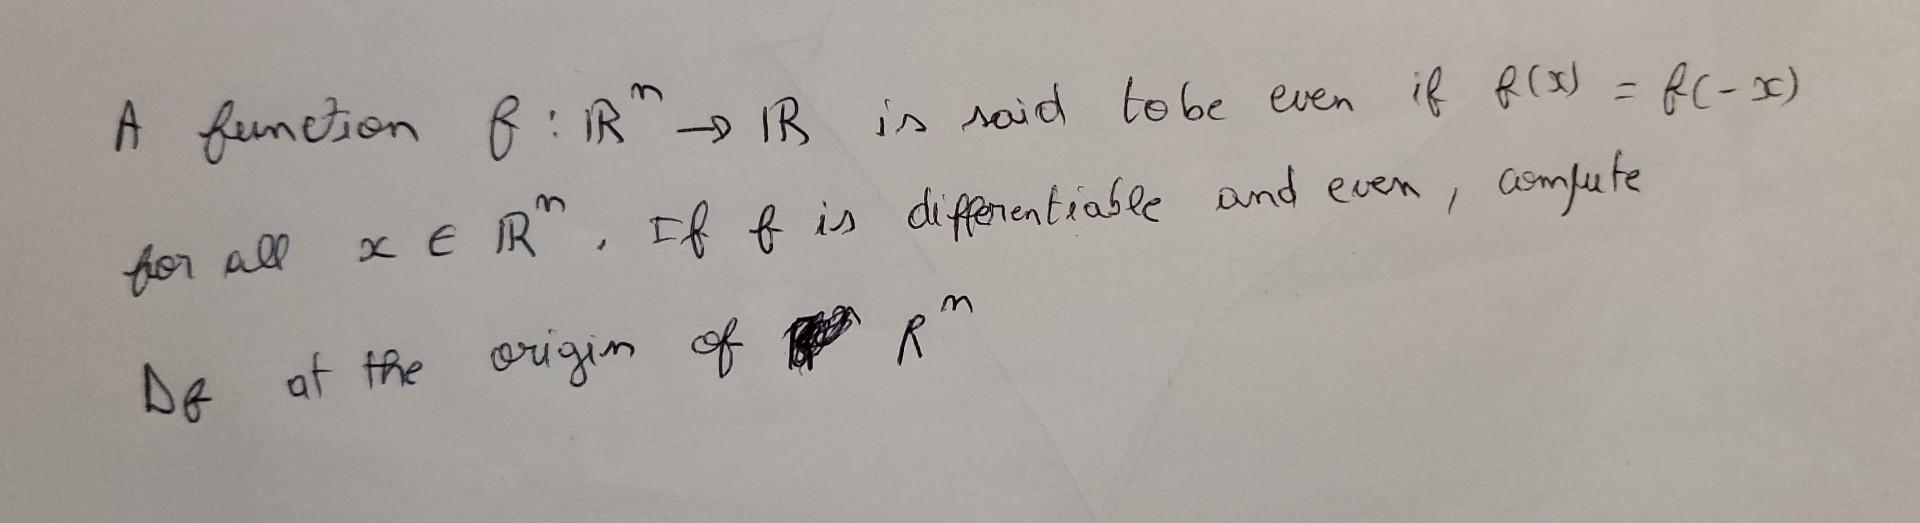 A function f : ℝⁿ → ℝ is said to be even if f(x) = f(-x)
for all x ∈ ℝⁿ. If f is differentiable and even, compute
Df at the origin of Rⁿ